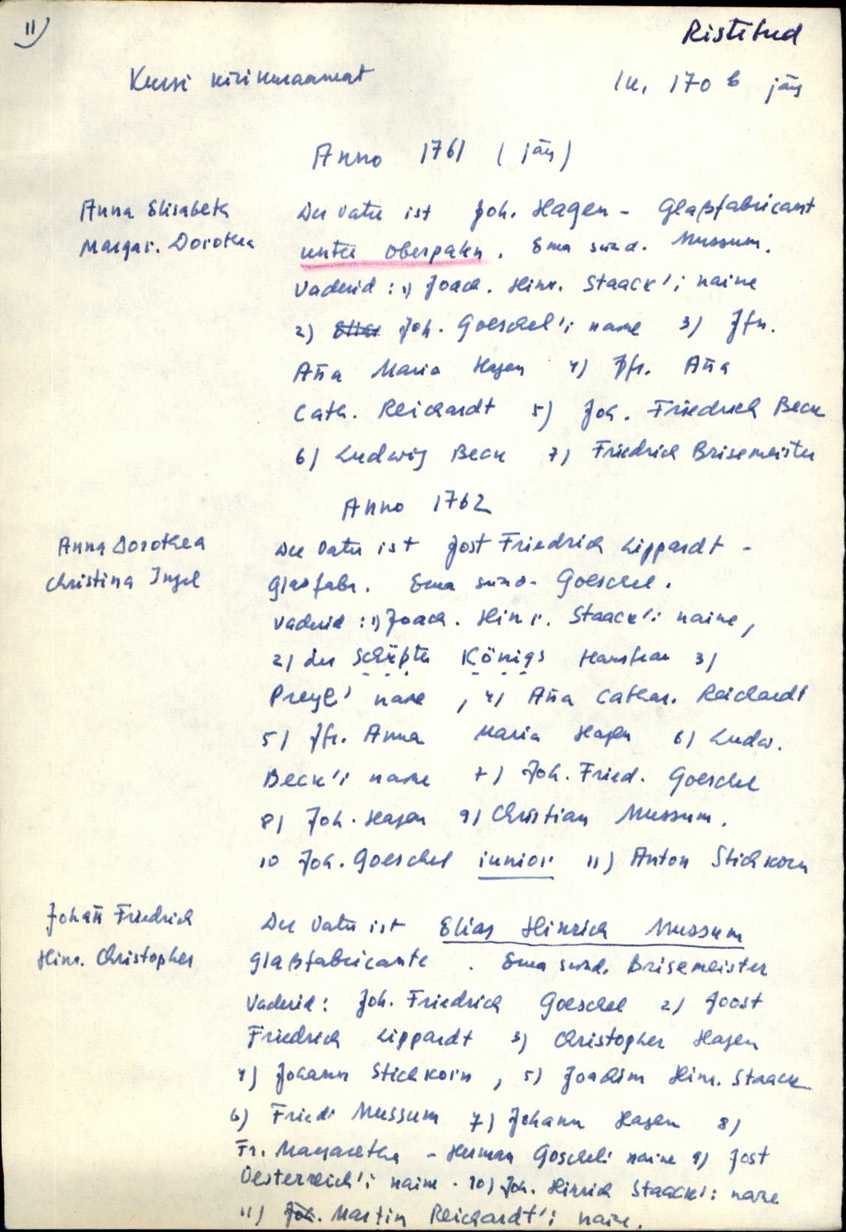 11)
Ristitud
Kursi kirikuraamat
lk. 170 b järg
Anno 1761 (järg)
Anna Elisabeth
Margar. Dorothea
Der Vater ist Joh. Hagen - Glaßfabricant
unter Oberpahn. Ema sünd. Mussum.
Vaderid : 1) Joach. Hinr. Staack'i naine
2) Joh. Goeschel'i naine 3) Jfr.
Aña Maria Hagen 4) Jfr. Aña
Cath. Reichardt 5) Joh. Friedrich Beck
6) Ludwig Beck 7) Friedrich Brisemeister
Anno 1762
Anna Dorothea
Christina Ingel
Der Vater ist Jost Friedrich Lippardt -
glasfabr. Ema sünd. Goeschel.
Vaderid : 1) Joach. Hinr. Staack'i naine,
2) der Königs 3)
naine, 4) Aña Cathar. Reichardt
5) Jfr. Anna Maria Hagen 6) Ludw.
Beck'i naine 7) Joh. Fried. Goeschel
8) Joh. Hagen 9) Christian Mussum.
10 Joh. Goeschel iunior 11) Anton Stichkorn
Johañ Friedrich
Hinr. Christopher
Der Vater ist Elias Hinrich Mussum
glaßfabricante. Ema sünd. Brisemeister
Vaderid : Joh. Friedrich Goeschel 2) Joost
Friedrich Lippardt 3) Christopher Hagen
4) Johann Stichkorn, 5) Joachim Hinr. Staack
6) Friedr Mussum 7) Johann Hagen 8)
Fr. Margaretha - Herman Goschel'i naine 9) Jost
Oesterreich'i naine. 10) Joh. Hinrich Staack'i naine
11) Joh. Martin Reichardt'i naine.